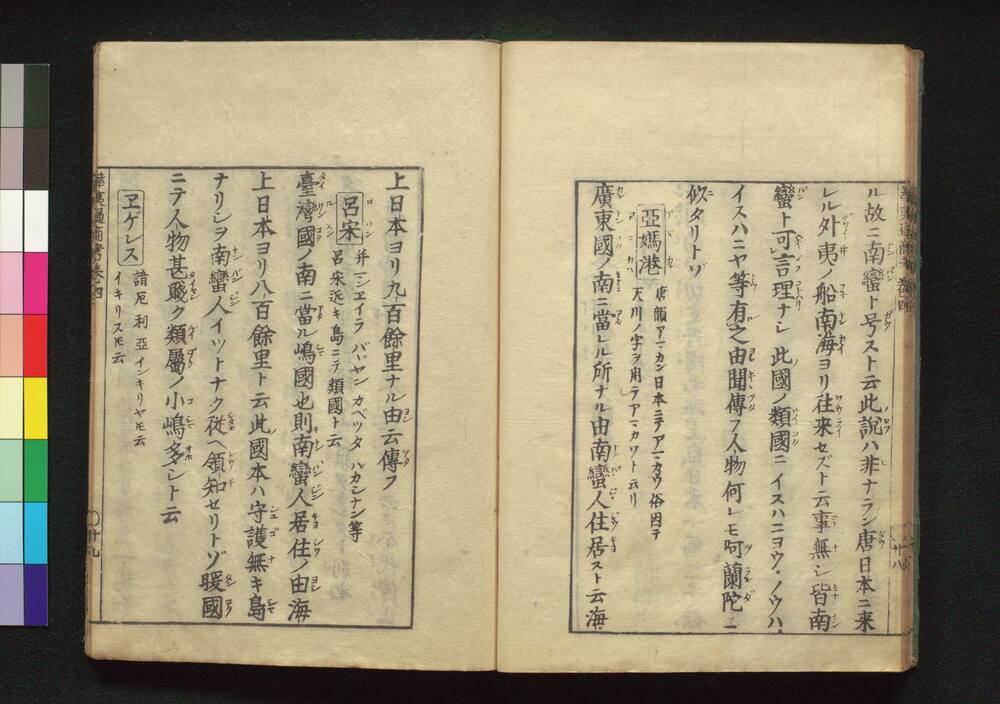 ル故ニ南蠻ト号スト云此説ハ非ナラン唐日本ニ来
レル外夷ノ船南海ヨリ往来セズト云事無シ皆南
蠻ト可言理ナシ此國ノ類國ニイスハニヨウ・ノウハ・
イスハニヤ等有之由聞傳フ人物何レモ阿蘭陀ニ
似タリトゾ
亞媽港 唐韻アマカン日本ニテアマカウ俗因テ
天川ノ字ヲ用テアマカワト云リ
廣東國ノ南ニ當レル所ナル由南蠻人住居スト云海
上日本ヨリ九百餘里ナル由云傳フ
呂宋 并マンエイラ バヤン カベツタ バカシナン等
呂宋近キ島ニテ類國ト云
臺灣國ノ南ニ當ル嶋國也則南蠻人居住ノ由海
上日本ヨリ八百餘里ト云此國本ハ守護無キ島
ナリシヲ南蠻人イットナク従ヘ領知セリトゾ暖國
ニテ人物甚賤ク類屬ノ小嶋多シト云
ヱゲレス 諳厄利亞インキリヤトモ云
イキリストモ云